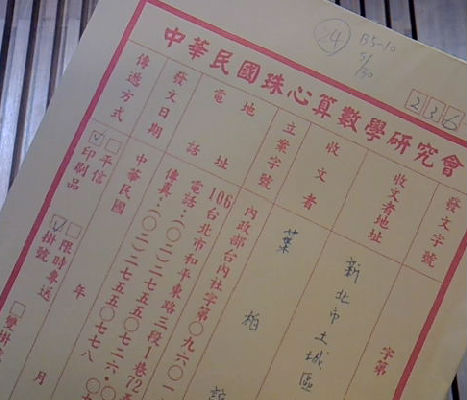 24
B5-10
51
236
中華民國珠心算數學研究會
發文字號
字第
收文者地址
新北市土城區
收文者
葉柏
立案字號
內政部台內社字第○九六○一
地址
106台北市和平東路三段1巷72
電話
電話：(○二)二七五五○七二六・○七
傳真：(○二)二七五五○七七八
發文日期
中華民國 年 月
傳遞方式
平信
印刷品
限時專送
掛號
雙掛號